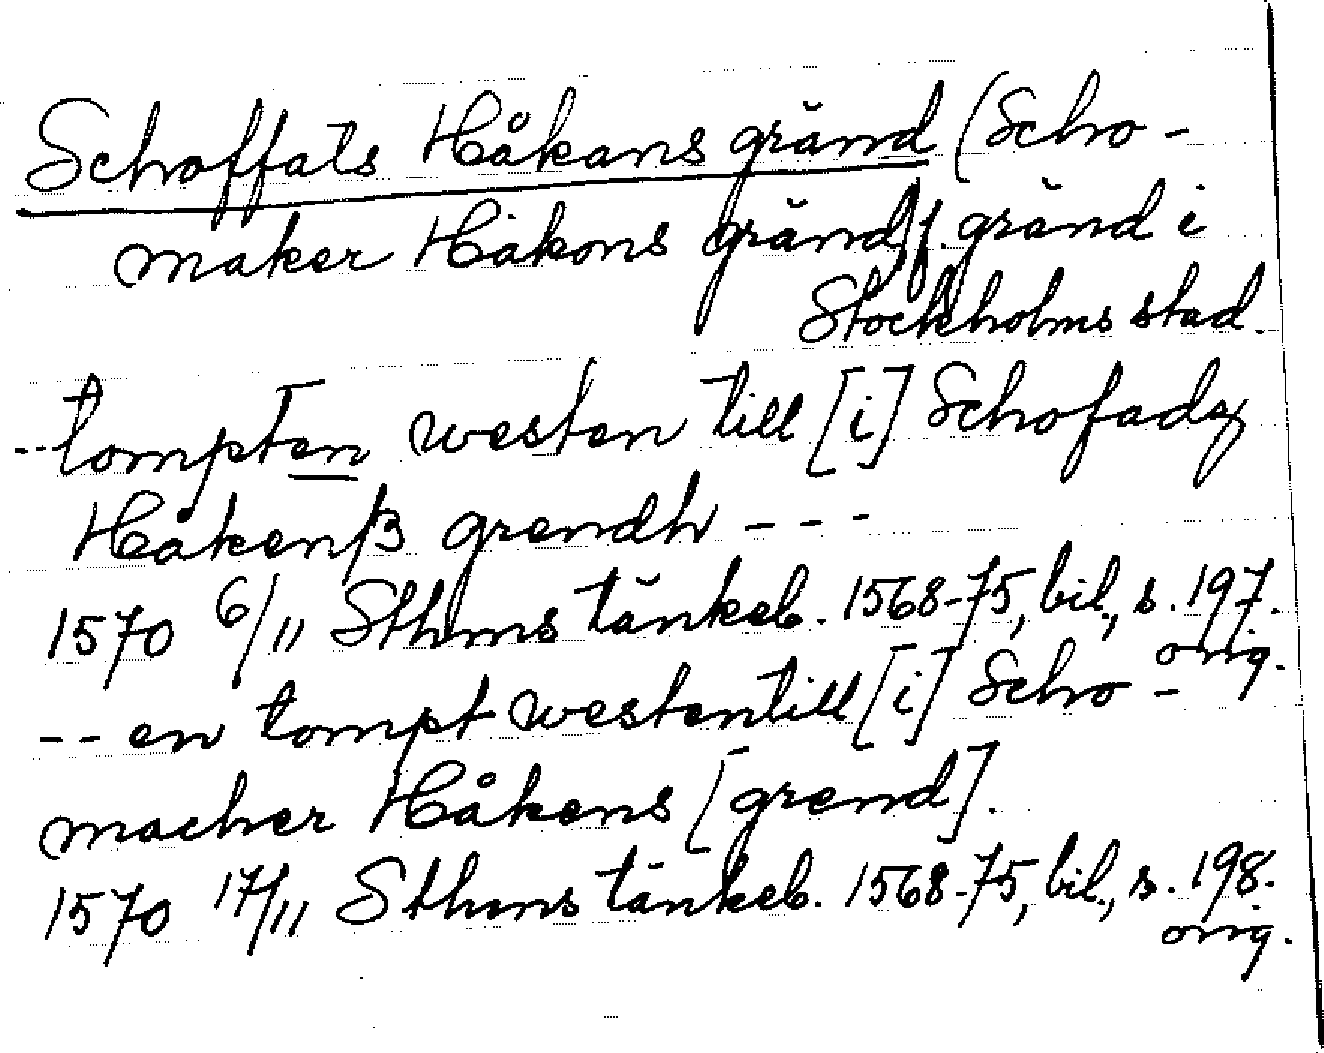 Schoffats Håkans gränd (Scho-
maker Håkons gränd), gränd i
Stockholms stad.
--tompten westen till [i] Schofadz
Håkenß grendh ---
1570 6/11 Sthms tänkeb. 1568-75, bil., s. 197.
orig.
-- en tompt westentill [i] Scho-
macher Håkens [grend].
1570 17/11 Sthms tänkeb. 1568-75, bil., s. 198.
orig.